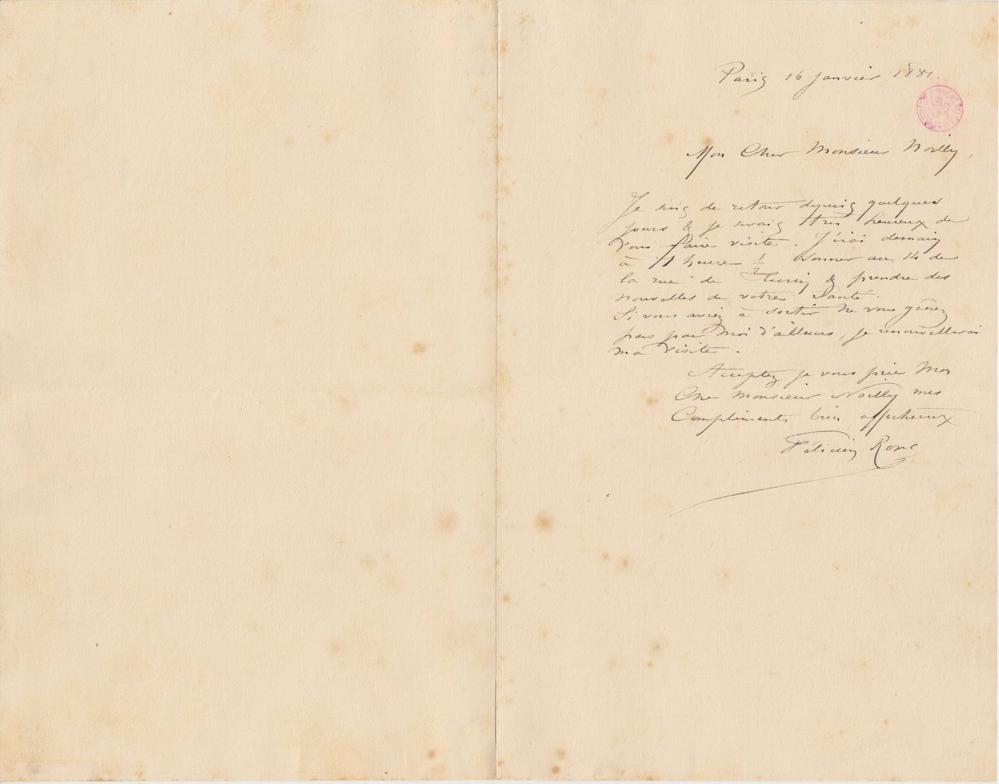 Paris 16 Janvier 1881.
Mon Cher Monsieur Noilly,
Je suis de retour depuis quelques
jours & je serais très heureux de
vous faire visite. J'irai demain
à 11 heures ½ sonner au 14 de
la rue de Turin & prendre des
nouvelles de votre Santé.
Si vous aviez à sortir ne vous gênez
pas pour moi d'ailleurs, je renouvellerai
ma visite.
Acceptez je vous prie Mon
Cher Monsieur Noilly mes
Compliments bien affectueux
Félicien Rops